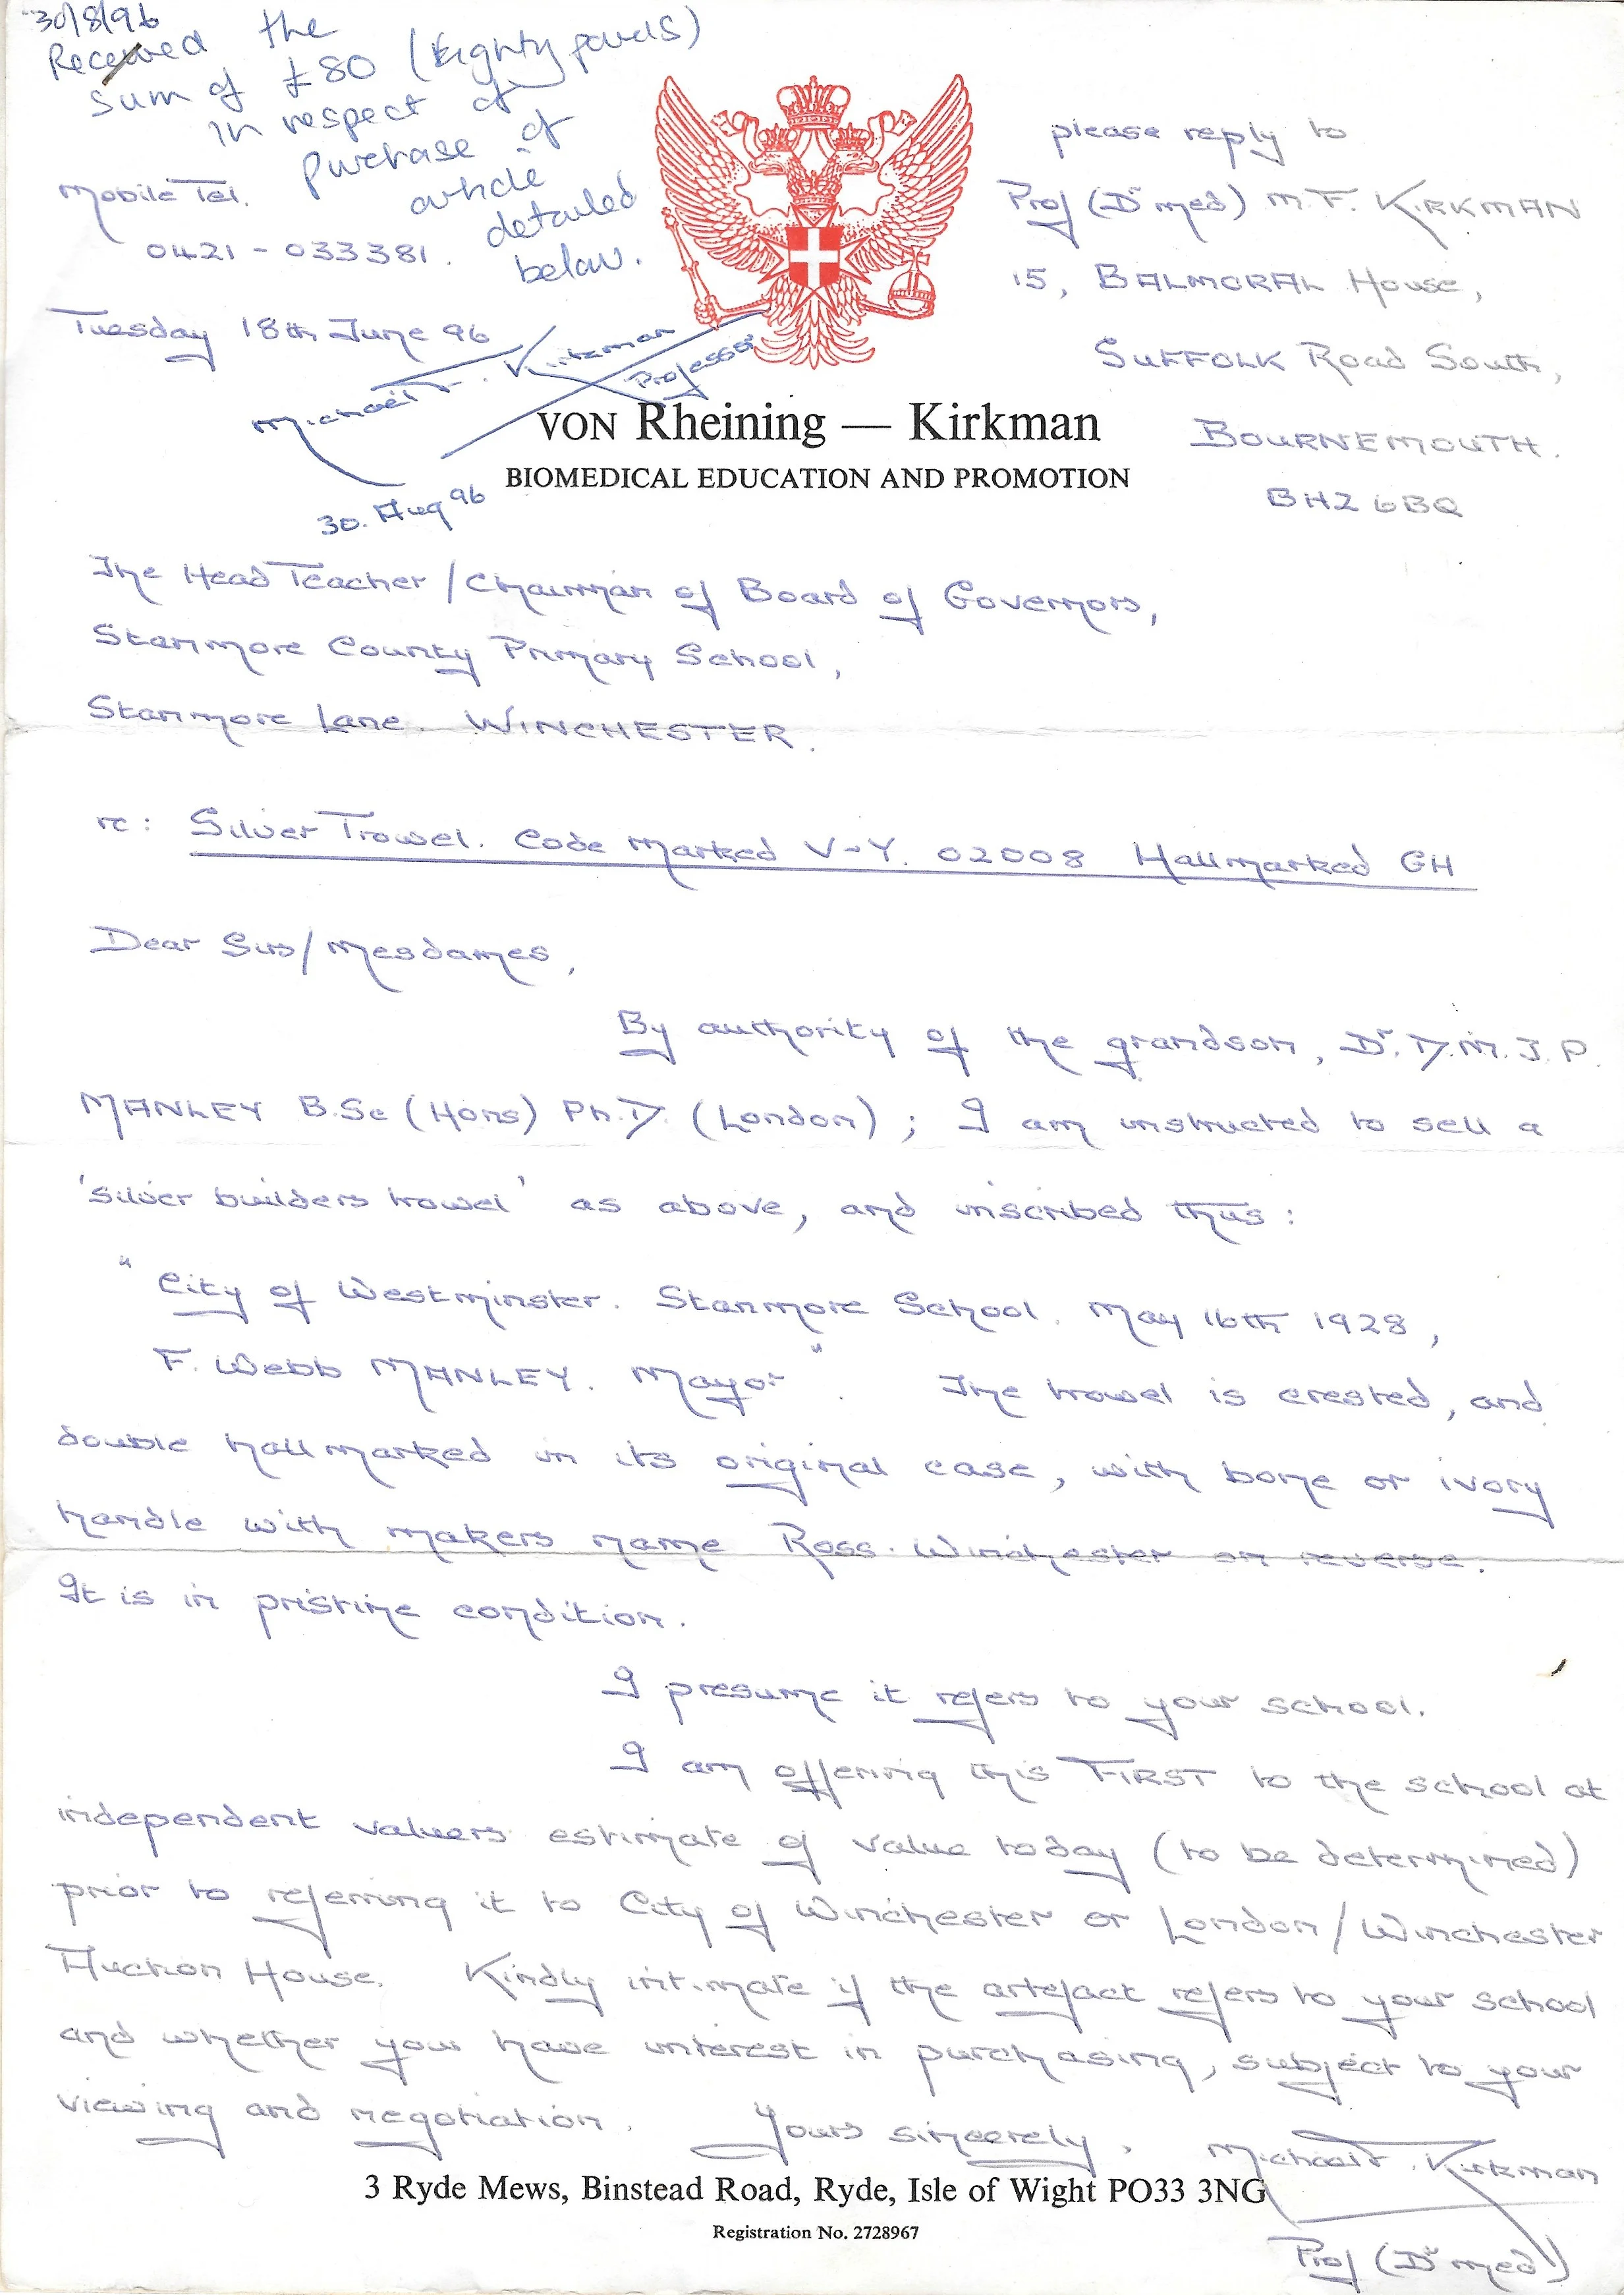 30/8/96
Received the
sum of £80 (Eighty pounds)
in respect of
purchase of
article
detailed
below.
Michael F. Kirkman
Professor
30. Aug 96
Mobile Tel.
0421 - 033381.
Tuesday 18th June 96
please reply to
Prof (Dr med) M.F. KIRKMAN
15, BALMORAL House,
SUFFOLK Road South,
BOURNEMOUTH.
BH2 6BQ
VON Rheining — Kirkman
BIOMEDICAL EDUCATION AND PROMOTION
The Head Teacher / Chairman of Board of Governors,
Stanmore County Primary School,
Stanmore Lane. WINCHESTER.
re: Silver Trowel. Code Marked V-Y. 02008 Hallmarked GH
Dear Sirs/Mesdames,
By authority of the grandson, Dr. D.M.J.P.
MANLEY B.Sc (Hons) Ph.D. (London); I am instructed to sell a
'silver builders trowel' as above, and inscribed thus:
" City of Westminster. Stanmore School. May 16th 1928,
F. Webb MANLEY. Mayor". The trowel is crested, and
double hallmarked in its original case, with bone or ivory
handle with makers name Ross. Winchester on reverse.
It is in pristine condition.
I presume it refers to your school.
I am offering this FIRST to the school at
independent valuers estimate of value today (to be determined)
prior to referring it to City of Winchester or London/Winchester
Auction House. Kindly intimate if the artefact refers to your school
and whether you have interest in purchasing, subject to your
viewing and negotiation. Yours sincerely, Michael F. Kirkman
Prof (Dr med)
3 Ryde Mews, Binstead Road, Ryde, Isle of Wight PO33 3NG
Registration No. 2728967